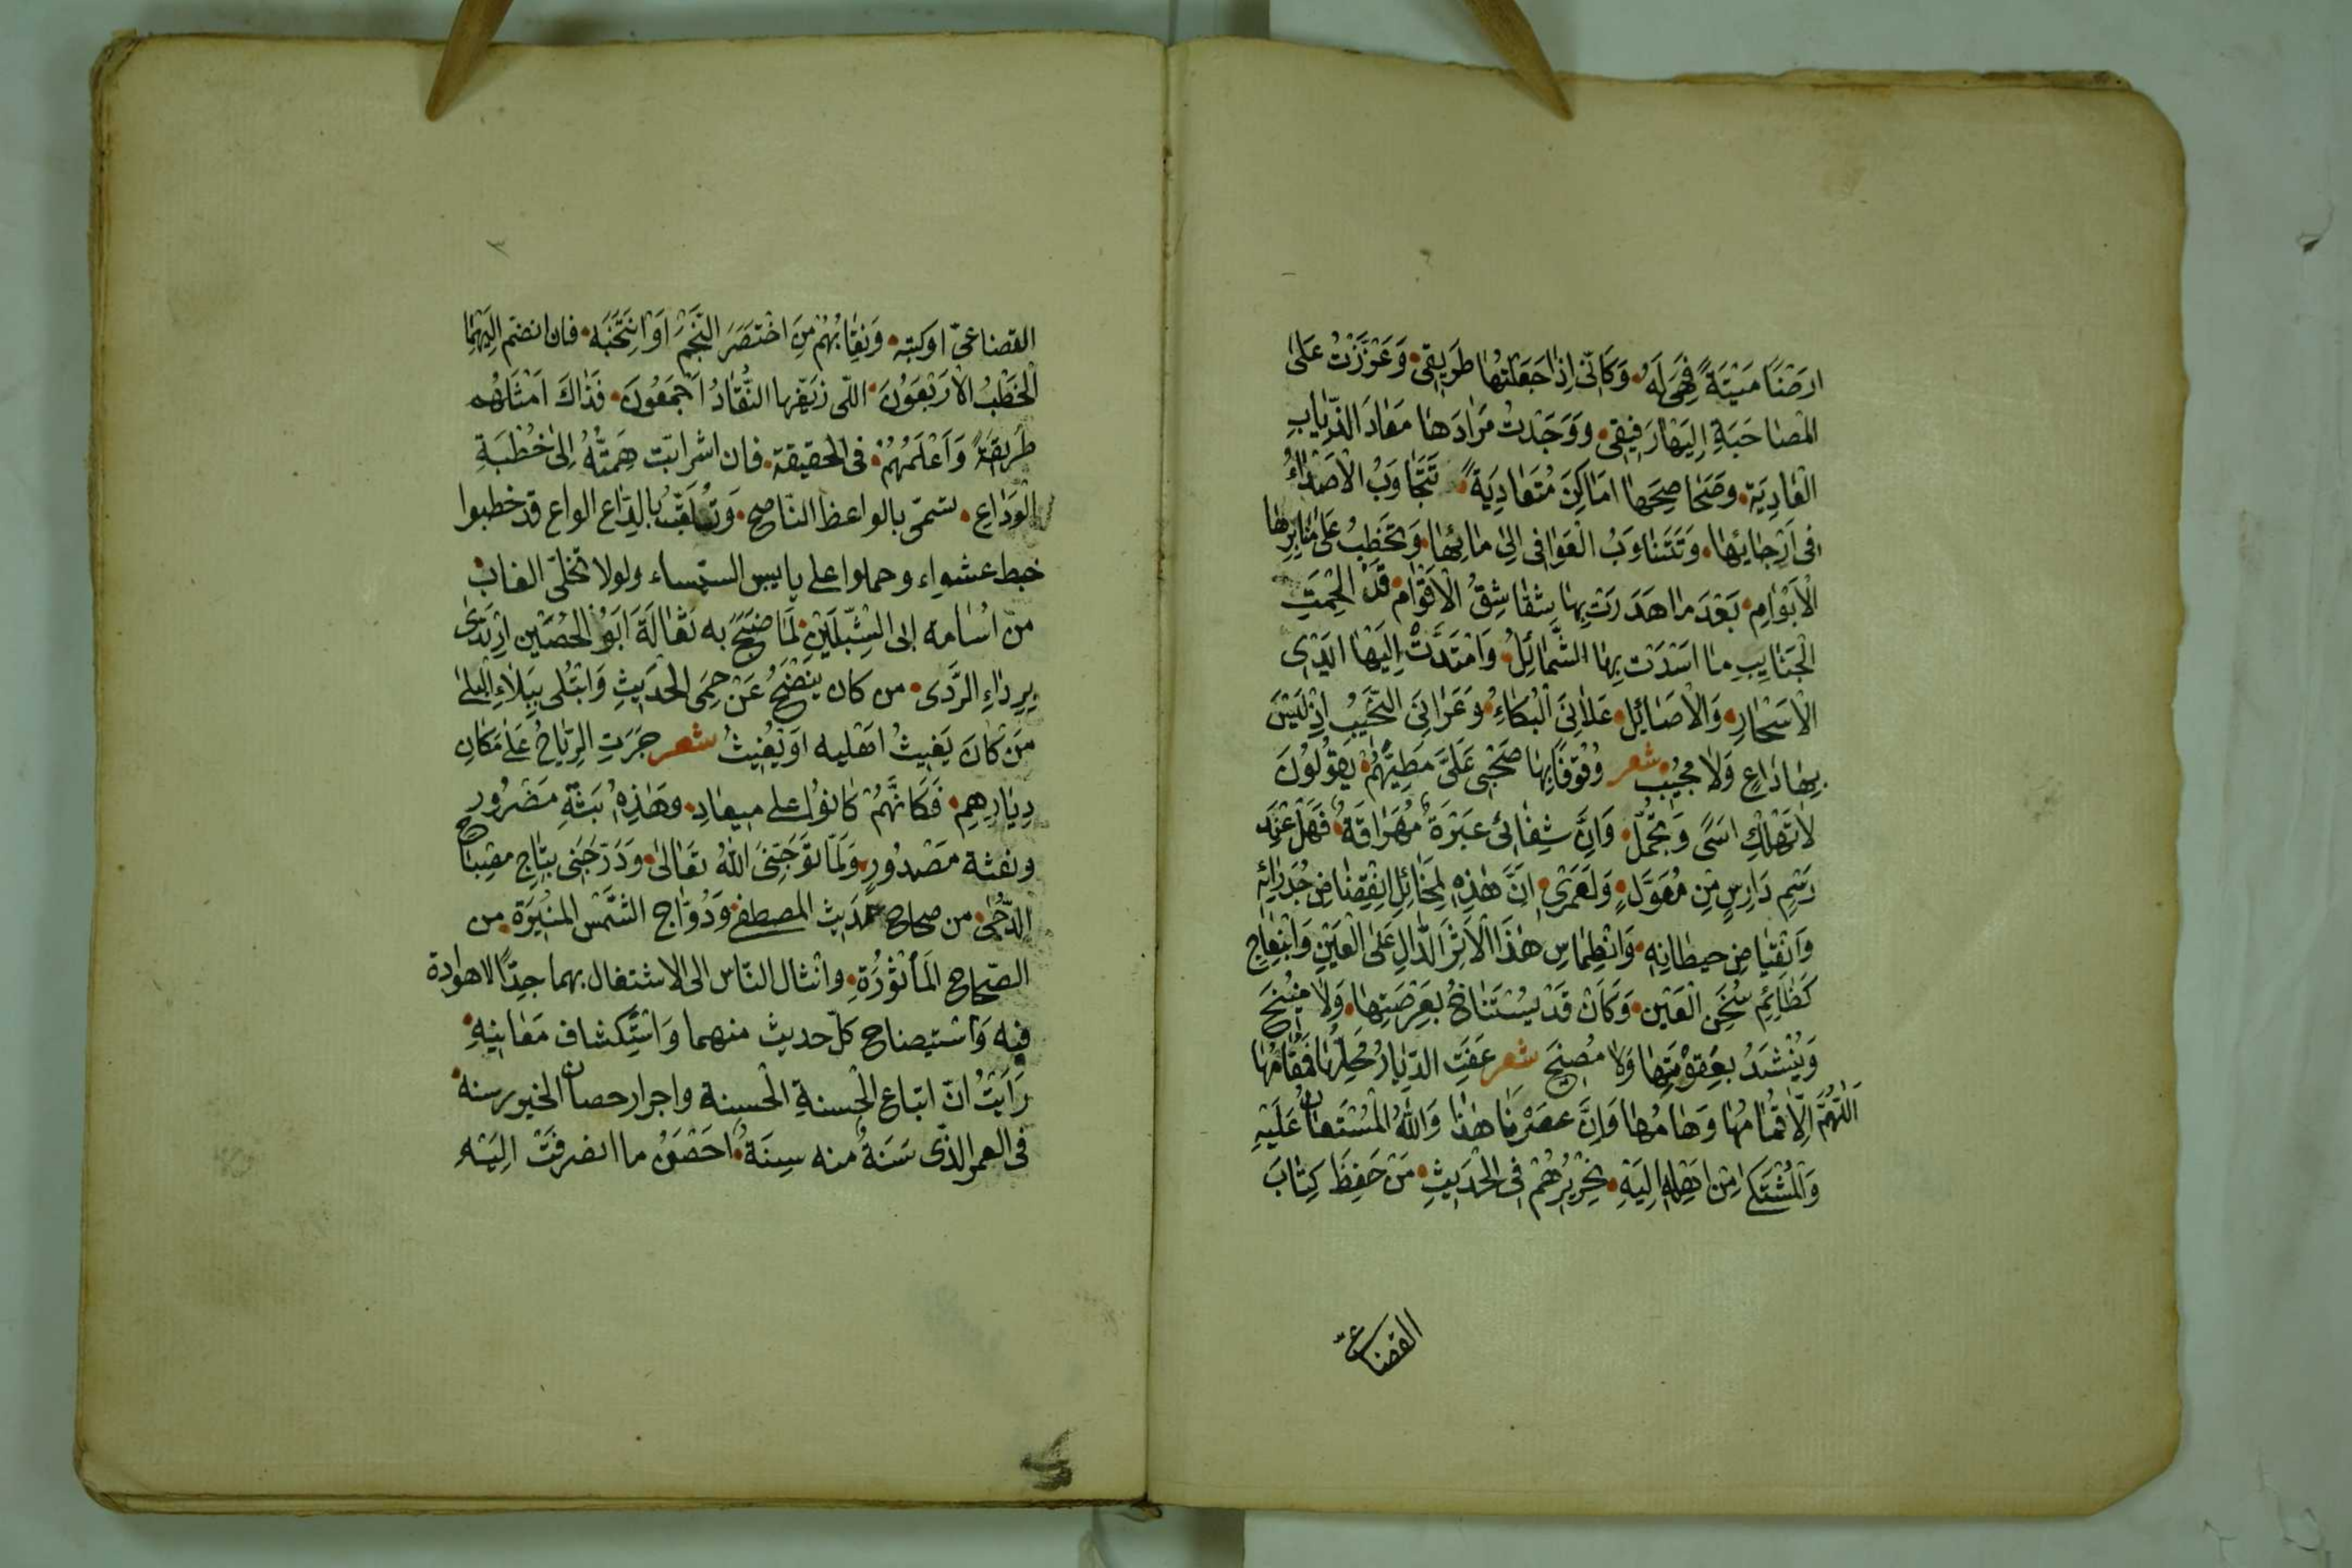 ارْضًا مَيْتَةً فَهِيَ لَهُ وَكَانِّي اِذَا جَعَلْتُهَا طَرِيقِي وَعَزَّزْتُ عَلى
المُصَاحَبَةِ اِلَيْهَا رَفِيقِي وَوَجَدْتُ مَرَادَهَا مَعَادَ الذِّيَابِ
العَادِيَة وصَحَاصِحَهَا امَاكِنَ مُتَعَادِيَةً تَتَجَاوَبُ الْاَصْدَاءُ
فِى اَرْجَائِهَا وَتَتَنَاوَبُ الْعَوَافِى اِلى مَائِهَا وَتَخْطِبُ عَلى مَنَابِرِهَا
الْاَبْوَامِ بَعْدَ مَا هَدَرَتْ بِهَا شَقَاشِقُ الْاَقْوَامِ قَدْ الْحَمَتِ
الْجَنَايِبِ مَا اسْدَتْ بِهَا الشَّمَائِلُ وَامْتَدَّتْ اِلَيْهَا ايْدِى
الْاَسْحَارِ وَالْاَصَائِلِ عَلَانِىَ الْبُكَاءُ وَعَرَانِىَ النَّحِيبُ اِذْ لَيْسَ
بِهَا دَاعٍ وَلَا مُجِيْبٌ شعر وُقُوْفًا بِهَا صَحْبِى عَلَىَّ مَطِيَّهُمْ يَقُوْلُوْنَ
لَا تَهْلِكْ اسًى وَتَجَمَّلْ وَاِنَّ شِفَائِى عَبْرَةٌ مُهَرَاقَةٌ فَهَلْ عِنْدَ
رَسْمٍ دَارِسٍ مِنْ مُعَوَّلٍ وَلَعَمْرِى اِنَّ هٰذِهِ لَمَخَائِلِ انْقِضَاضِ جُدْرَانِه
وَانْقِيَاضِ حِيطَانِهِ وَانْطِمَاسِ هٰذَا الْاَثَرِ الدَّالِ عَلَى الْعَيْنِ وَانْبِعَاجِ
كَظَائِمِ سُخَنِ الْعَيْنِ وَكَانَ قَدْ يُسْتَنَاخُ بِعَرْصَتِهَا وَلَا مُنِيْخَ
وَيُنْشَدُ بِعَقْوَتِهَا وَلَا مُصِيْخَ شعر عَفَتِ الدِّيَارُ مُحِلُّهَا فَمُقَامُهَا
اَللّٰهُمَّ اِلَّا ثُمَامُهَا وَهَامُهَا وَاِنَّ عَصْرَنَا هٰذَا وَاللّٰهُ الْمُسْتَعَانُ عَلَيْهِ
وَالْمُشْتَكَى مِنْ اهْلِهِ اِلَيْهِ نِحْرِيْرُهُمْ فِى الْحَدِيْثِ مَنْ حَفِظَ كِتَابَ
القضاعىّ
القضاعىّ اوكتبه وَنِقَابُهُمْ مِنَ اخْتَصَرَ النَّجْمَ اَوِ انْتَخَبَه فان انضمّ اِلَيْهِمَا
الْخُطَبُ الْاَرْبَعُوْنَ اللّتى زَيَّفَهَا النُّقَّادُ اَجْمَعُوْنَ فَذَاكَ امْثَلُهُم
طَرِيقَةً وَاَعْلَمُهُمْ فى الحقيقة فان اشرابّت هِمَّتُهُ اِلى خُطْبَةِ
الْوَدَاعِ تسمّى بالواعظ النّاصح وَتَلَقَّبُ بالدّاع الواع قد خطبوا
خبط عشواء وحملوا على يابس السّيساء ولولا تخلّى الغاب
من اُسَامه الى الشِّبْلَيْنِ لَمَا ضَبَحَ به ثُعَالَةَ اَبُو الحُصَيْن اِرْتَدَى
بِرِدَاءِ الرَّدَى من كان يَنْضَحُ عَنْ حِمَى الحَدِيْثِ وَابْتُلِى بِبَلَاءِ الْبِلَى
مَنْ كَانَ يَغِيثُ اهْلِيه اَوْ يُغِيْثُ شعر جَرَتِ الرِّيَاحُ عَلَى مَكَانِ
دِيَارِهِمِ فَكَانَّهُمْ كَانُوْا على ميعادِ وهٰذِهٖ بَثَّةِ مَضْرُورٍ
ونفثة مَصْدُورٍ وَلَمّا تَوَّجَنِىَ اللّٰهُ تَعَالىٰ وَدَرَّجَنِى بِتَاجِ مِصْبَاحِ
الدُّجَى من صحاح حَدِيث المصطفى وَدُوَّاج الشَّمْس المُنِيْرَة من
الصّحاح المَأْثُوْرَةِ وانثال النّاس الى الاشتغال بهما جِدًّا لا هوادة
فِيه وَاسْتيضاح كلّ حديث منهما وَاسْتِكشاف مَعَانِيْهِ
رَاَيْتُ انّ اتباع الْحَسنةِ الْحسنة واجرار حصان الخير رسنه
فى العمر الذى سَنَةٌ منه سِنَةٌ اَحْصَنُ ما انصرفَتْ اِلَيْهِ